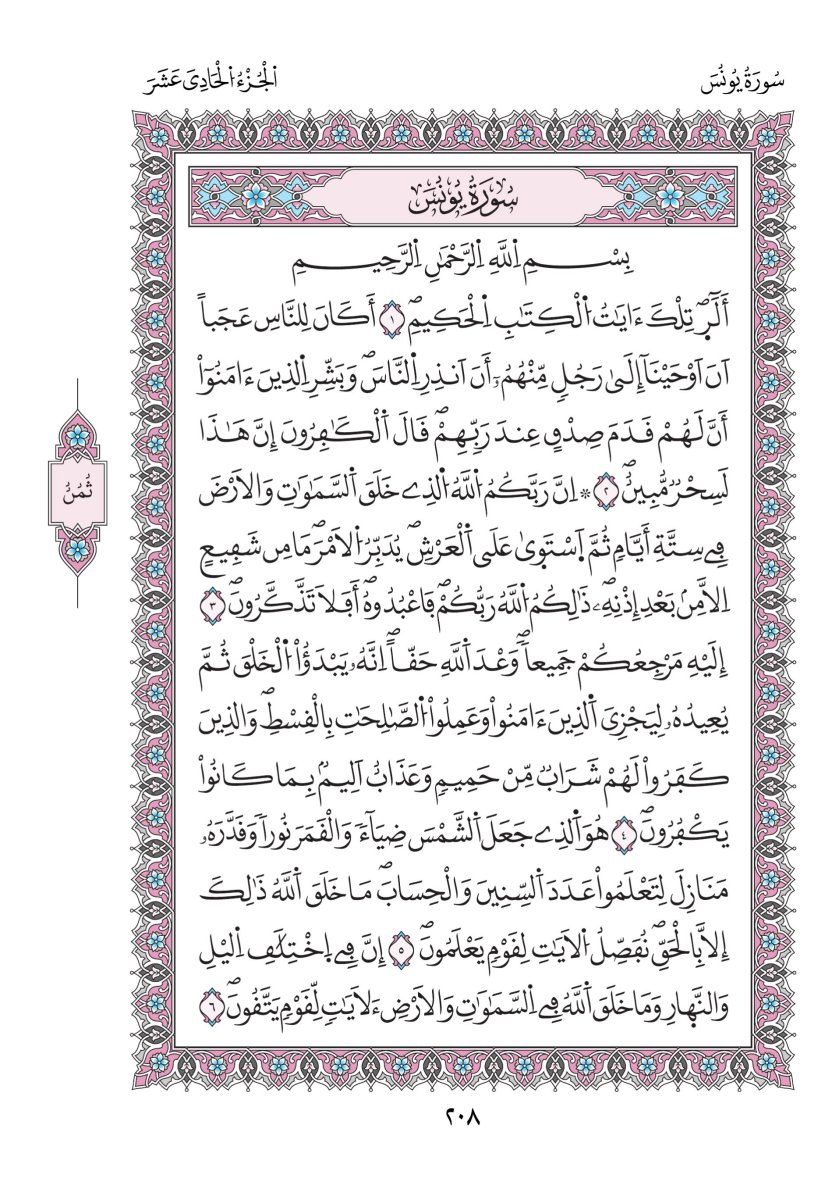 سُورَةُ يُونُسَ
اَلْجُزْءُ اَلْحَادِيَ عَشَرَ
سُورَةُ يُونُسَ
بِسْمِ اِللَّهِ اِلرَّحْمَٰنِ اِلرَّحِيمِ
أَلَٓرۖ تِلْكَ ءَايَٰتُ اُلْكِتَٰبِ اِلْحَكِيمِۖ ١ أَكَانَ لِلنَّاسِ عَجَباً
اَنَ اَوْحَيْنَآ إِلَىٰ رَجُلٖ مِّنْهُمُۥٓ أَنَ اَنذِرِ اِلنَّاسَۖ وَبَشِّرِ اِلذِينَ ءَامَنُوٓاْ
أَنَّ لَهُمْ قَدَمَ صِدْقٍ عِندَ رَبِّهِمْۖ قَالَ اَلْكَٰفِرُونَ إِنَّ هَٰذَا
لَسِحْرٞ مُّبِينٌۖ ٢ ۞ اِنَّ رَبَّكُمُ اُللَّهُ اُلذِے خَلَقَ اَلسَّمَٰوَٰتِ وَالَارْضَ
فِے سِتَّةِ أَيَّامٖ ثُمَّ اَسْتَوَىٰ عَلَى اَلْعَرْشِۖ يُدَبِّرُ اُلَامْرَۖ مَا مِن شَفِيعٍ
اِلَّا مِنۢ بَعْدِ إِذْنِهِۦۖ ذَٰلِكُمُ اُللَّهُ رَبُّكُمْۖ فَاعْبُدُوهُۖ أَفَلَا تَذَّكَّرُونَۖ ٣
إِلَيْهِ مَرْجِعُكُمْ جَمِيعاًۖ وَعْدَ اَللَّهِ حَقّاًۖ اِنَّهُۥ يَبْدَؤُاْ اُلْخَلْقَ ثُمَّ
يُعِيدُهُۥ لِيَجْزِيَ اَلذِينَ ءَامَنُواْ وَعَمِلُواْ اُلصَّٰلِحَٰتِ بِالْقِسْطِۖ وَالذِينَ
كَفَرُواْ لَهُمْ شَرَابٞ مِّنْ حَمِيمٖ وَعَذَابٌ اَلِيمُۢ بِمَا كَانُواْ
يَكْفُرُونَۖ ٤ هُوَ اَلذِے جَعَلَ اَلشَّمْسَ ضِيَآءٗ وَالْقَمَرَ نُوراٗ وَقَدَّرَهُۥ
مَنَازِلَ لِتَعْلَمُواْ عَدَدَ اَلسِّنِينَ وَالْحِسَابَۖ مَا خَلَقَ اَللَّهُ ذَٰلِكَ
إِلَّا بِالْحَقِّۖ نُفَصِّلُ اُلَايَٰتِ لِقَوْمٖ يَعْلَمُونَۖ ٥ إِنَّ فِے اِخْتِلَٰفِ اِليْلِ
وَالنَّهارِ وَمَا خَلَقَ اَللَّهُ فِے اِلسَّمَٰوَٰتِ وَالَارْضِ ءَلَايَٰتٖ لِّقَوْمٖ يَتَّقُونَۖ ٦
ثُمُنُ
٢٠٨